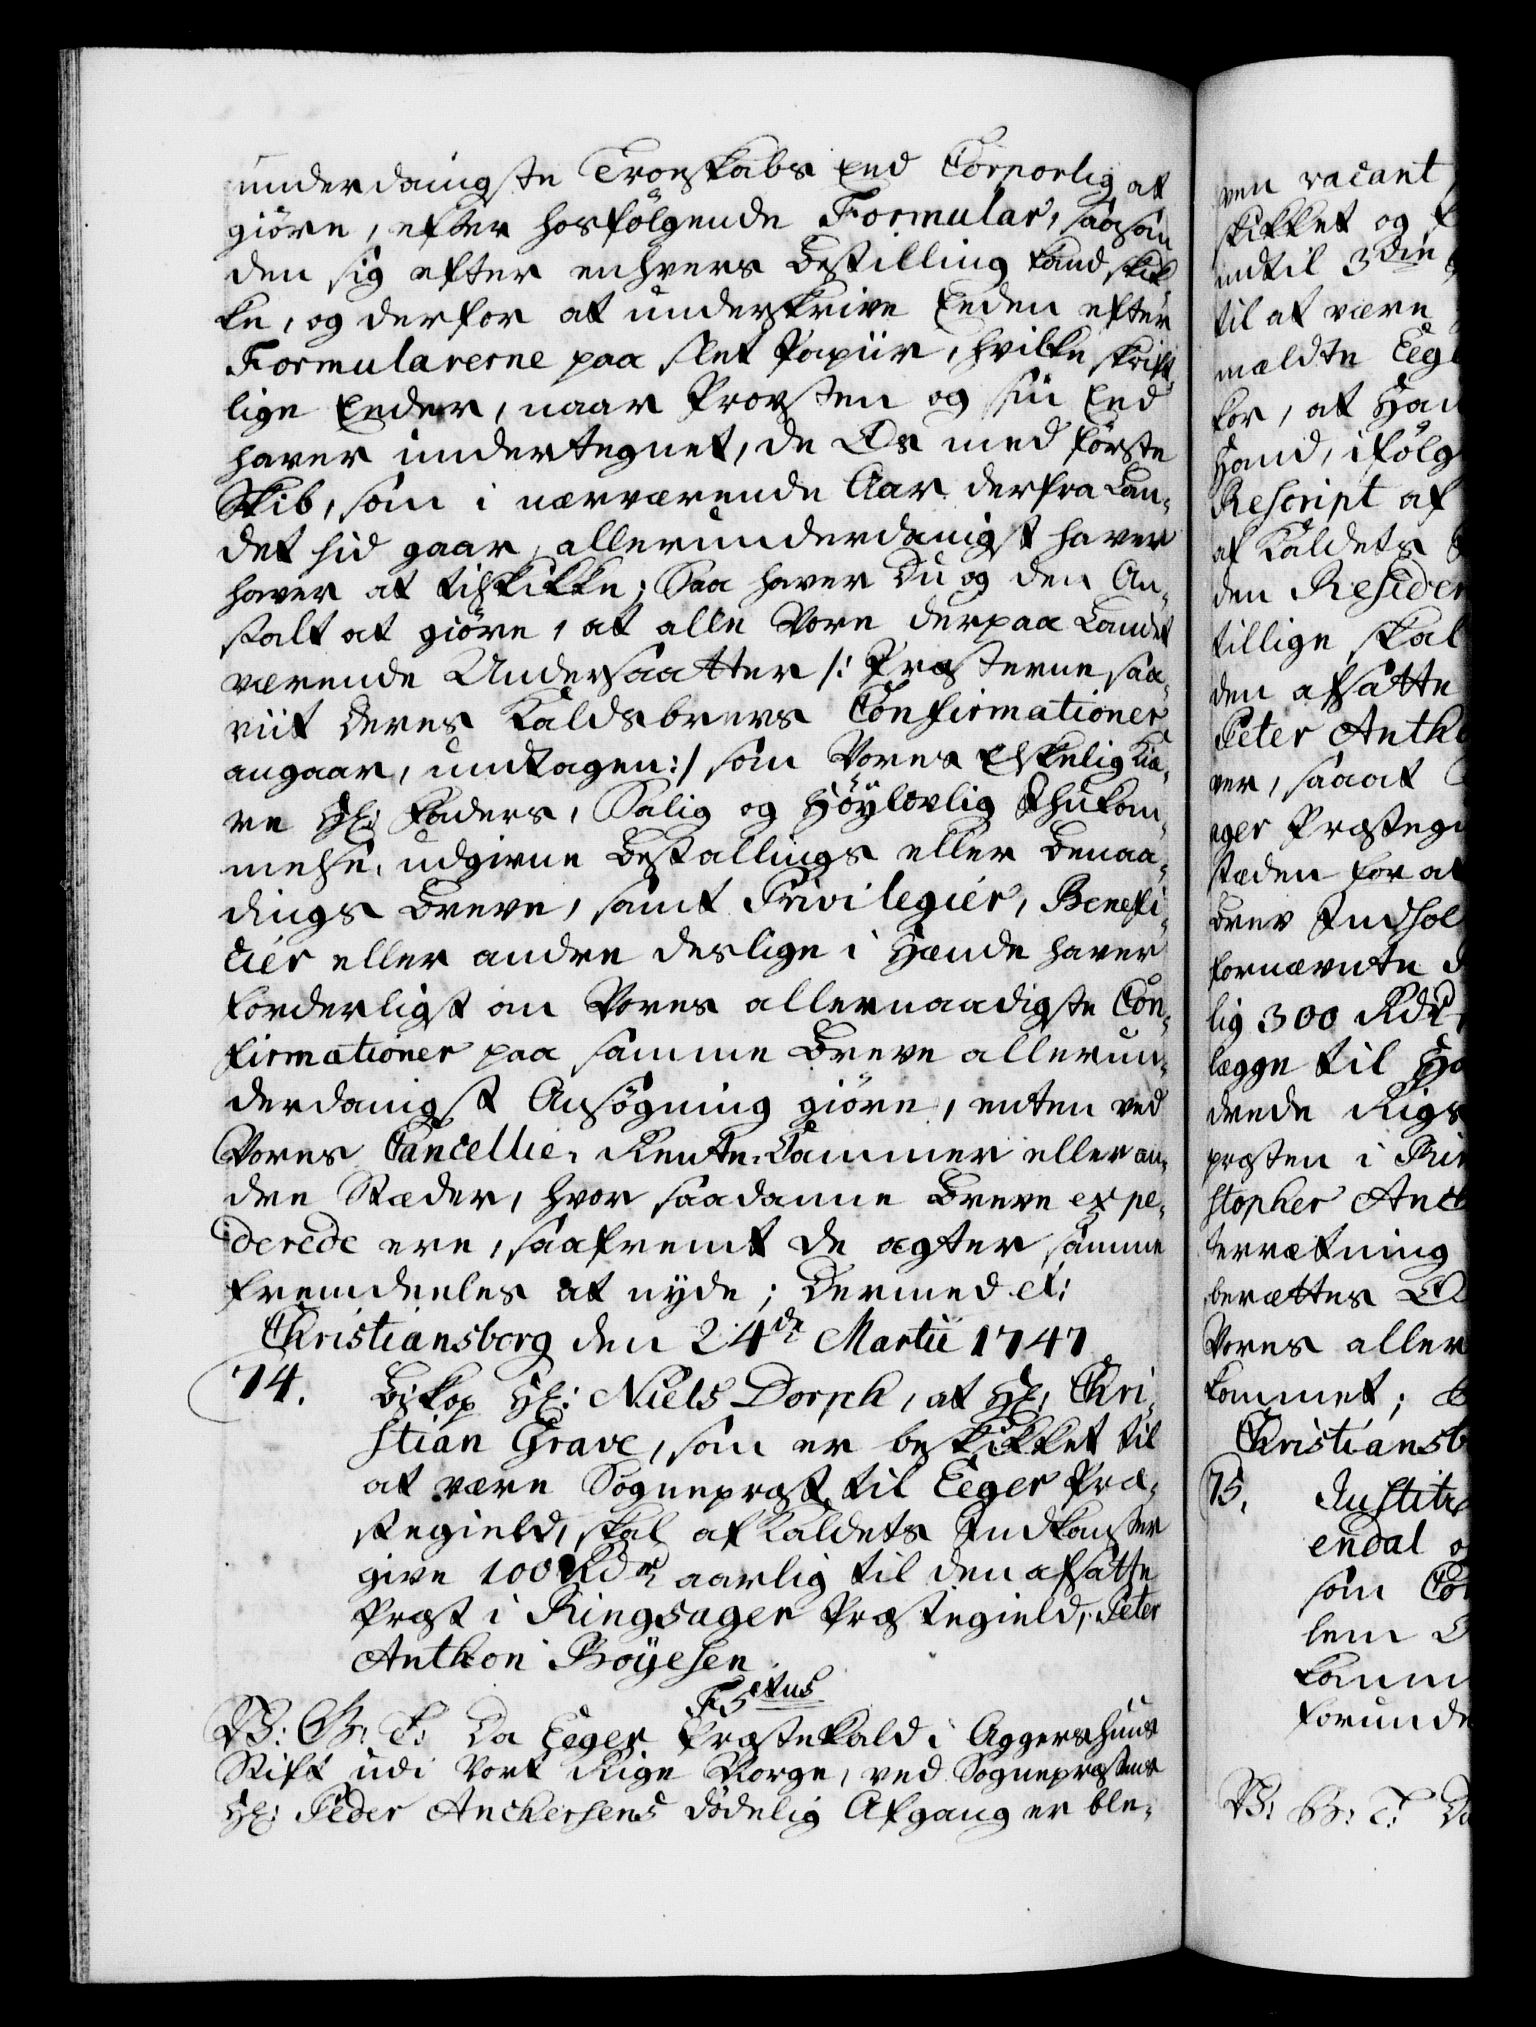 underdanigste Troeskabs Eed Corporlig at
giöre, efter hosfölgende Formular, saasom
den sig efter enhvers Bestilling kand skik
ke, og derfor at underskrive Eeden efter
Formularerne paa slet Papiir, hvilke skrift-
lige Eeder, naar Provsten og sin Eed
haver undertegnet, de Os med förste
Skib, som i nærværende Aar derfra Lan-
det hid gaar, allerunderdanigst haver
haver at tilskikke; Saa haver Du og den An-
stalt at giöre, at alle Vore derpaa Landet
værende Undersaatter /: Præsterne saa-
viit deres Kaldsbrevs Confirmationer
angaar, undtagen:/ som Vores Elskelig Kiæ-
re Hr: Faders, Salig og Höylovlig Ihukom-
melse, udgivne Bestallings eller Benaa-
dings Breve, samt Privilegier, Benefi-
cier eller andre deslige i Hænde haver
forderligst om Vores allernaadigste Con-
firmationer paa samme Breve allerun-
derdanigst Ansögning giöre, enten ved
Vores Cancellie, Rente-Cammer eller an-
dre Stæder, hvor saadanne Breve expe-
derede ere, saafremt de agter samme
fremdeeles at nyde; Dermed et:
Christiansborg den 24de Martii 1747
74. Biskop Hr: Niels Dorph, at Hr: Chri-
stian Grave, som er beskikket til
at være Sognepræst til Eeger Præ-
stegield, skal af Kaldets Indkomster
give 100 Rdr aarlig til den afsatte
Præst i Ringsager Præstegield, Peter
Anthon Böyesen.
F5tus
V: G: T: Da Eeger Præstekald i Aggershuus
Stift udi Vort Rige Norge, ved Sognepræstens
Hr: Peder Anchersens dödelig Afgang er ble-
ven vacant,
skikket og
indtil 3die
til at være
meldte Eeg
for, at Han
Haand, ifölg
Rescript af
af Kaldets
den Residen
tillige skal
den afsatte
Peter Antho
ver, saaat
ager Præstegi
stæden for at
Brev Indhol
fornævnte
lig 300 Rdr
legge til Ha
drede Rigs
præsten i Rin
stopher Anch
terrætning
berættes
Vores aller
kommet;
Christiansb
75. Justitz
endal
som Co
lem
Camm
forunde
V: G: T: Da